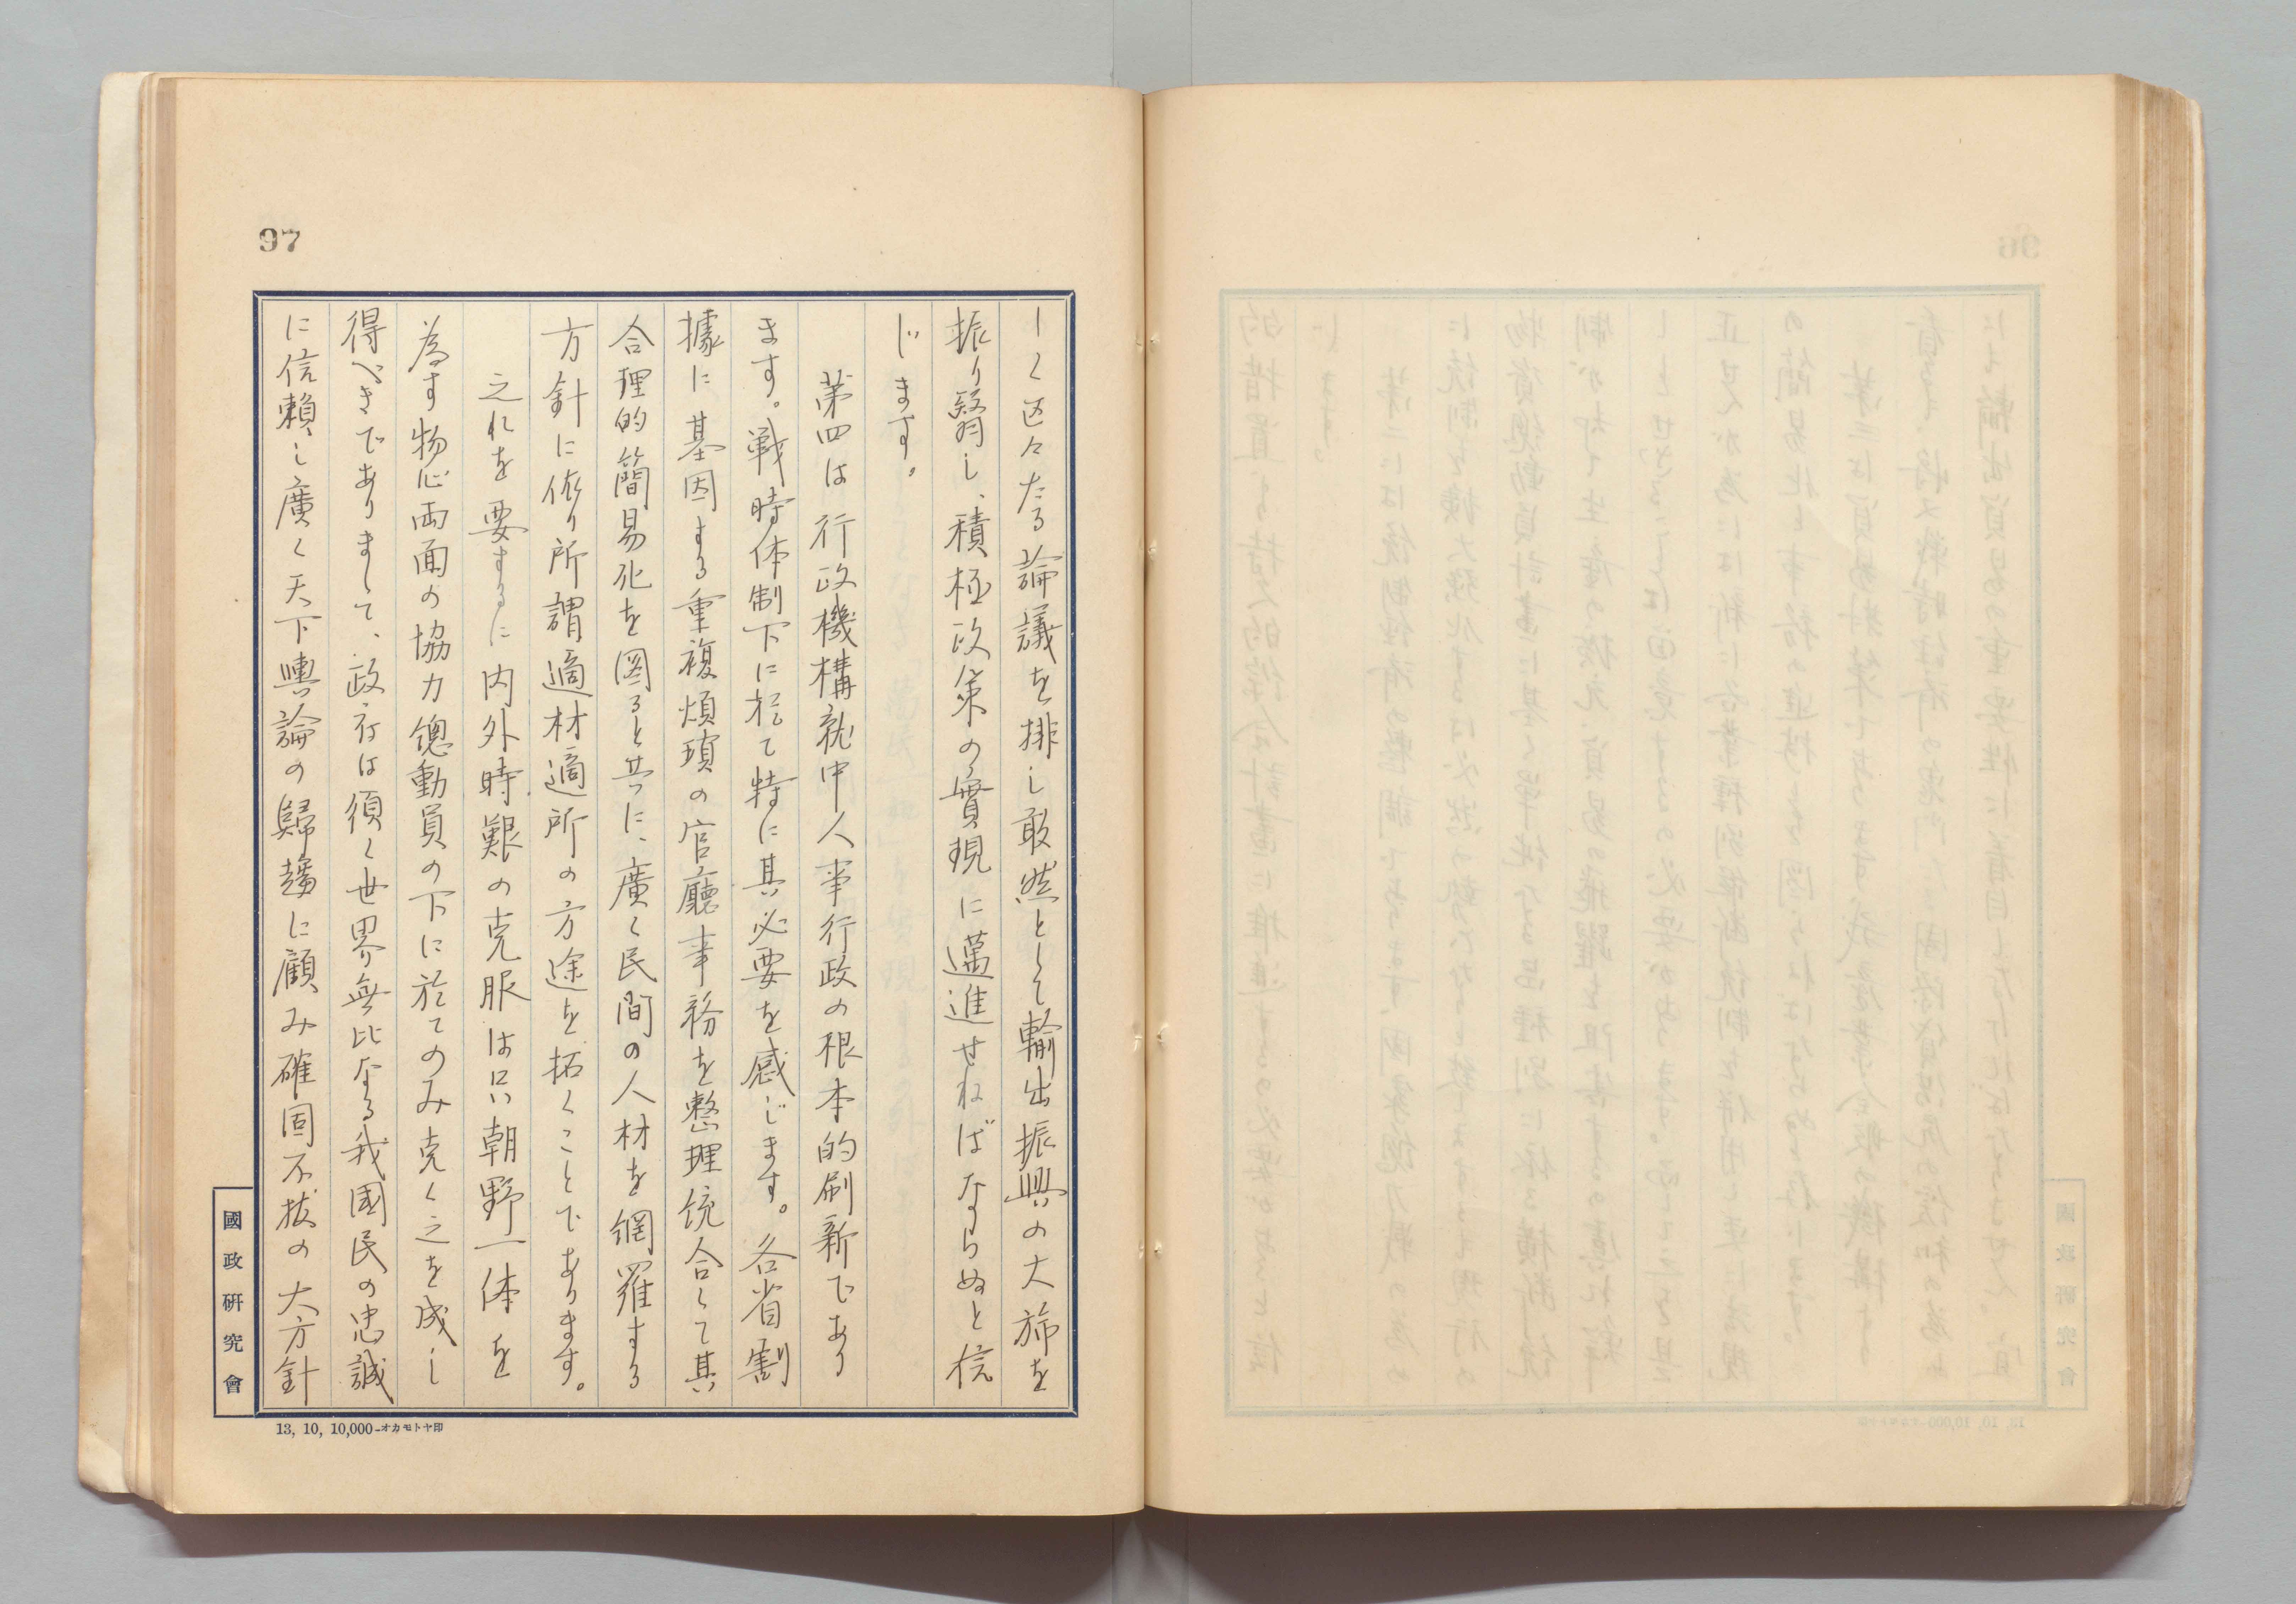 97
しく区々たる論議を排し敢然として輸出振興の大旆を
振り翳し、積極政策の實現に邁進せねばならぬと信
じます。
第四は行政機構就中人事行政の根本的刷新であり
ます。戦時体制下に於て特に其必要を感じます。各省割
據に基因する重複煩瑣の官廳事務を整理統合して其
合理的簡易化を図ると共に、廣く民間の人材を網羅する
方針に依り所謂適材適所の方途を拓くことであります。
之れを要するに内外時艱の克服は只朝野一体を
為す物心両面の協力總動員の下に於てのみ克く之を成し
得べきでありまして、政府は須く世界無比なる我國民の忠誠
に信頼し廣く天下輿論の歸趨に顧み確固不抜の大方針
國政研究會
13, 10, 10,000-オカモトヤ印